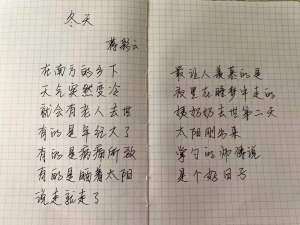 冬天
蒋彩云
在南方的乡下
天气突然变冷
就会有老人去世
有的是年纪大了
有的是病痛所致
有的是晒着太阳
说走就走了
最让人羡慕的是
夜里在睡梦中走的
姨奶奶去世第二天
太阳刚出来
掌勺的师傅说
是个好日子